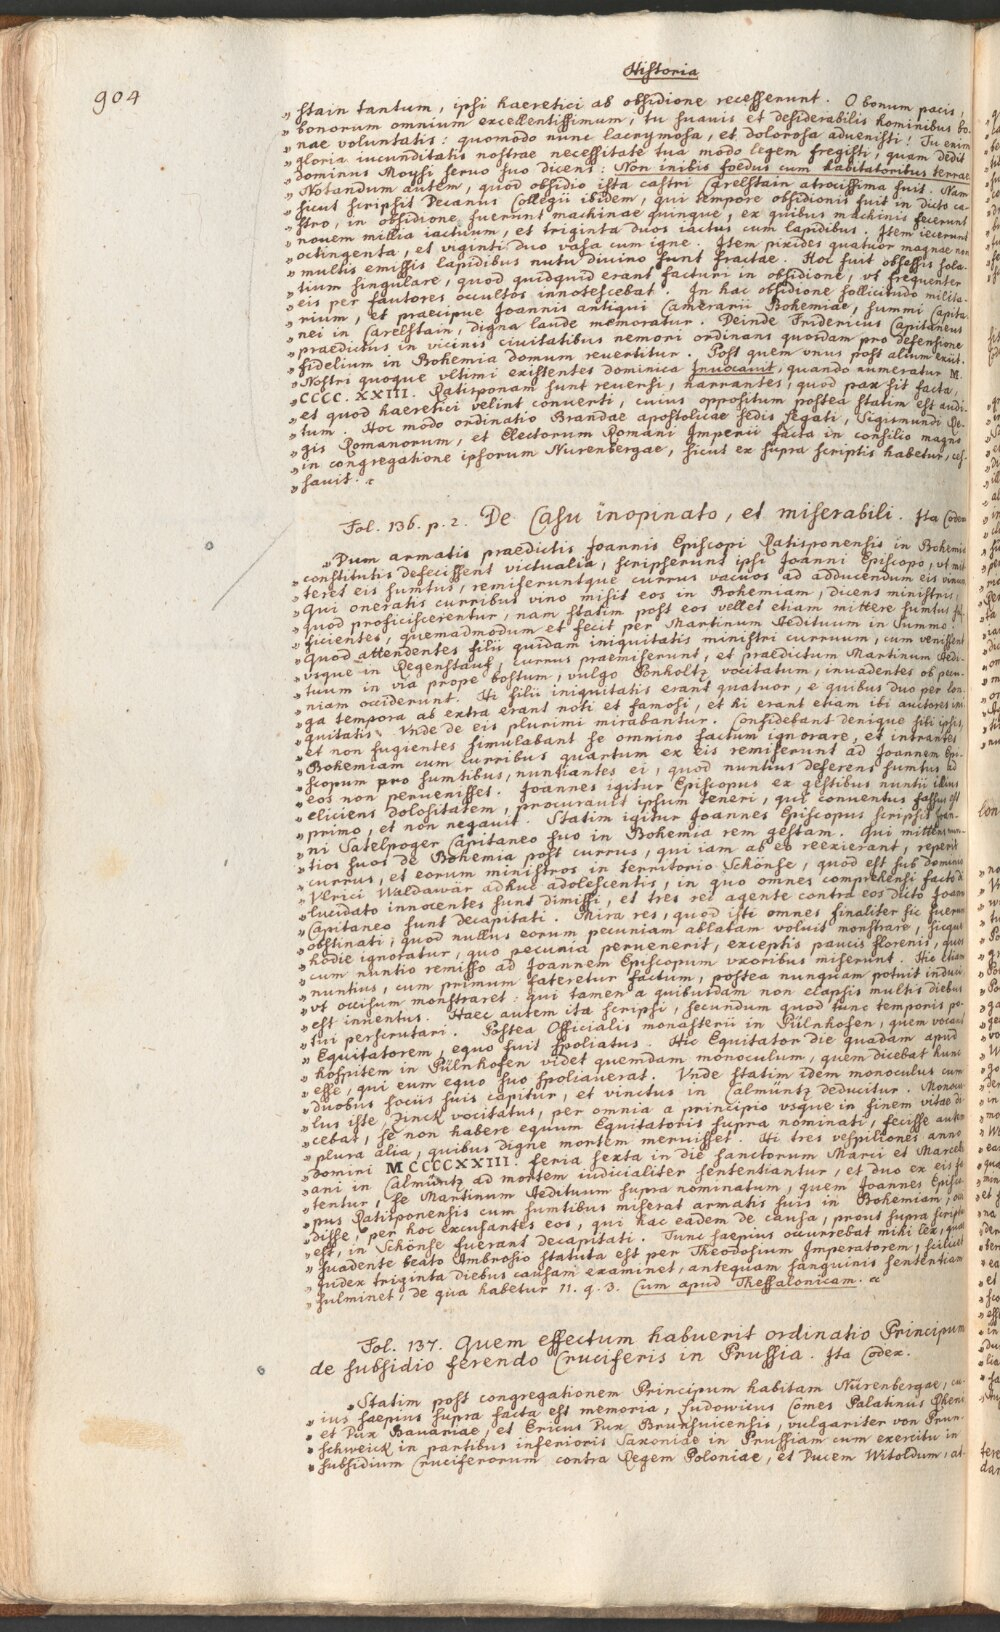 Historia
904
„ stain tantum, ipsi haeretici ab obsidione recesserunt. O bonum pacis,
„ bonorum omnium excellentissimum, tu suavis et desiderabilis hominibus bo-
„ nae voluntatis: quomodo nunc lacrymosa, et dolorosa advenisti! Tu enim
„ gloria iucunditatis nostrae necessitate tua modo legem fregisti, quam dedit
„ dominus Moysi servo suo dicens: Non inibis foedus cum habitatoribus terrae
„ Notandum autem, quod obsidio ista castri Carelstain atrocissima fuit. Nam
„ sicut scripsit Decanus Collegii ibidem, qui tempore obsidionis fuit in dicto ca-
„ stro, in obsidione fuerunt machinae quinque, ex quibus machinis fecerunt
„ novem millia iactuum, et triginta duos iactus cum lapidibus. Item iecerunt
„ octingenta, et viginti duo vasa cum igne. Item pixides quatuor magnae non
„ multis emissis lapidibus nutu divino sunt fractae. Hoc fuit obsessis sola-
„ tium singulare, quod quidquid erant facturi in obsidione, ut frequenter
„ eis per fautores occultos innotescebat. In hac obsidione sollicitudo milita-
„ rium, et praecipue Joannis antiqui Camerarii Bohemiae, summi Capita-
„ nei in Carelstain, digna laude memoratur. Deinde Fridericus Capitaneus
„ praedictus in vicinis civitatibus nemori ordinans quosdam pro defensione
„ fidelium in Bohemia domum revertitur. Post quem unus post alium exiit.
„ Nostri quoque ultimi existentes dominica Invocavit, quando numeratur M.
„ CCCC. XXIII. Ratisponam sunt reversi, narrantes, quod pax sit facta,
„ et quod haeretici velint converti, cuius oppositum postea statim est audi-
„ tum. Hoc modo ordinatio Brandae apostolicae sedis legati, Sigismundi Re-
„ gis Romanorum, et Electorum Romani Imperii facta in consilio magno
„ in congregatione ipsorum Nurenbergae, sicut ex supra scriptis habetur, ces-
„ savit.
Fol. 136. p. 2. De Casu inopinato, et miserabili. Ita Codex
„ Dum armatis praedictis Joannis Episcopi Ratisponensis in Bohemia
„ constitutis defecissent victualia, scripserunt ipsi Joanni Episcopo, ut mit-
„ teret eis sumtus, remiseruntque currus vacuos ad adducendum eis vinum
„ Qui oneratis curribus vino misit eos in Bohemiam, dicens ministris,
„ quod proficiscerentur, nam statim post eos vellet etiam mittere sumtus suf-
„ ficientes, quemadmodum et fecit per Martinum Aedituum in Summo.
„ Quod attendentes filii quidam iniquitatis ministri curruum, cum venissent
„ usque in Regenstauf, currus praemiserunt, et praedictum Martinum Aedi-
„ tuum in via prope bostum, vulgo Ponholtz vocitatum, invadentes ob pecu-
„ niam occiderunt. Hi filii iniquitatis erant quatuor, e quibus duo per lon-
„ ga tempora ab extra erant noti et famosi, et hi erant etiam ibi auctores ini-
„ quitatis. Unde de eis plurimi mirabantur. Confidebant denique sibi ipsis,
„ et non fugientes simulabant se omnino factum ignorare, et intrantes
„ Bohemiam cum curribus quartum ex eis remiserunt ad Joannem Epi-
„ scopum pro sumtibus, nuntiantes ei, quod nuntius deferens sumtus ad
„ eos non pervenisset. Joannes igitur Episcopus ex gestibus nuntii illius
„ eliciens dolositatem, procuravit ipsum teneri, qui conventus fassus est
„ primo, et non negavit. Statim igitur Joannes Episcopus scripsit Joan-
„ ni Satelpoger Capitaneo suo in Bohemia rem gestam. Qui mittens nun-
„ tios suos de Bohemia post currus, qui iam ab eo reexierant, reperit
„ currus, et eorum ministros in territorio Schönse, quod est sub dominio
„ Ulrici Waldawär adhuc adolescentis, in quo omnes comprehensi facto di-
„ lucidato innocentes sunt dimissi, et tres rei agente contra eos dicto Joanne
„ Capitaneo sunt decapitati. Mira res, quod isti omnes finaliter sic fuerunt
„ obstinati, quod nullus eorum pecuniam ablatam voluit monstrare, sicque
„ hodie ignoratur, quo pecunia pervenerit, exceptis paucis florenis, quos
„ cum nuntio remisso ad Joannem Episcopum uxoribus miserunt. Hic etiam
„ nuntius, cum primum fateretur factum, postea nunquam potuit induci
„ ut occisum monstraret: qui tamen a quibusdam non elapsis multis diebus
„ est inventus. Haec autem ita scripsi, secundum quod tunc temporis po-
„ tui perscrutari. Postea Officialis monasterii in Pülnhofen, quem vocant
„ Equitatorem, equo fuit spoliatus. Hic Equitator die quadam apud
„ hospitem in Pülnhofen videt quemdam monoculum, quem dicebat hunc
„ esse, qui eum equo suo spoliaverat. Unde statim idem monoculus cum
„ duobus sociis suis capitur, et vinctus in Calmüntz deducitur. Monocu-
„ lus iste Zinck vocitatus, per omnia a principio usque in finem vitae di-
„ cebat, se non habere equum Equitatoris supra nominati, fecisse autem
„ plura alia, quibus digne mortem meruisset. Hi tres vespiliones anno
„ domini MCCCCXXIII. feria sexta in die sanctorum Marci et Marcelli-
„ ani in Calmüntz ad mortem iudicialiter sententiantur, et duo ex eis fa-
„ tentur, se Martinum Aedituum supra nominatum, quem Joannes Episco-
„ pus Ratisponensis cum sumtibus miserat armatis suis in Bohemiam, occi-
„ disse, per hoc excusantes eos, qui hac eadem de causa, prout supra scriptum
„ est, in Schönse fuerant decapitati. Tunc saepius occurrebat mihi lex, quae
„ suadente beato Ambrosio statuta est per Theodosium Imperatorem, scilicet
„ iudex triginta diebus causam examinet, antequam sanguinis sententiam
„ fulminet, de qua habetur 11. q. 3. Cum apud Thessalonicam.
Fol. 137. Quem effectum habuerit ordinatio Principum
de subsidio ferendo Cruciferis in Prussia. Ita Codex.
„ Statim post congregationem Principum habitam Nürenbergae, cu-
„ ius saepius supra facta est memoria, Ludowicus Comes Palatinus Rheni
„ et Dux Bavariae, et Ericus Dux Brunsuicensis, vulgariter von Prun-
„ schweick in partibus inferioris Saxoniae in Prussiam cum exercitu in
„ subsidium Cruciferorum contra Regem Poloniae, et Ducem Witoldum, at-